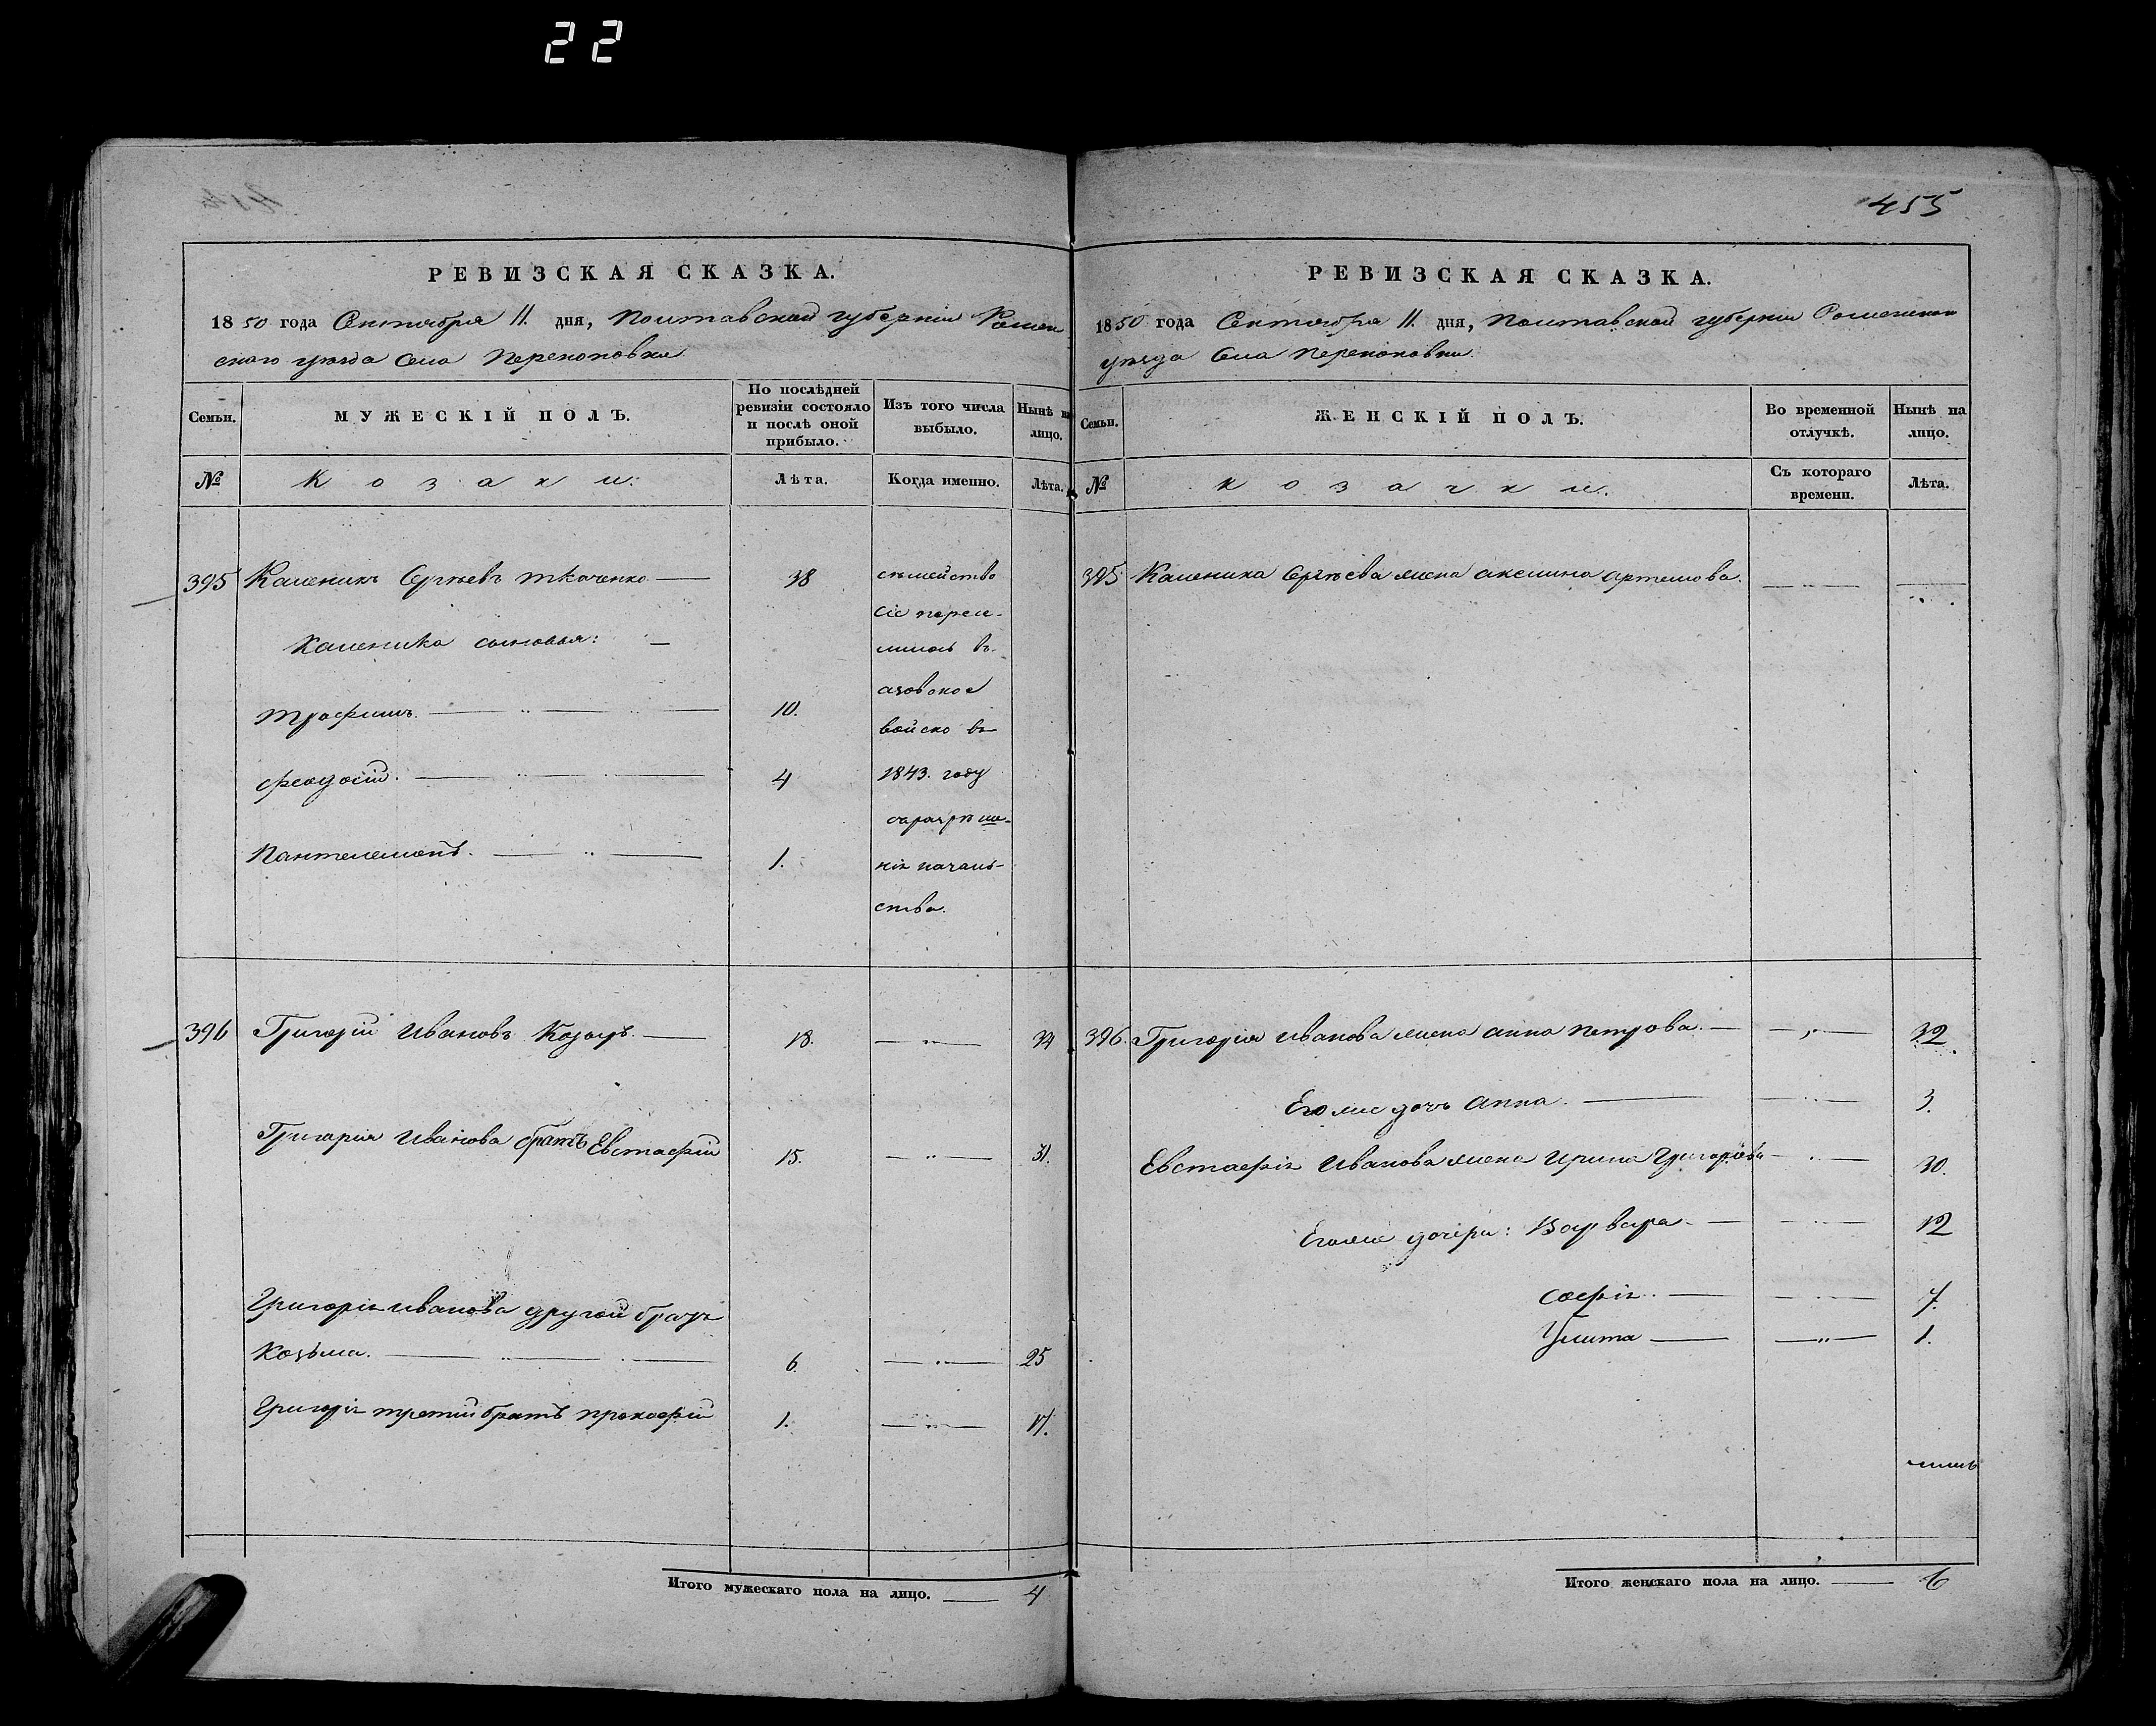 22
455
РЕВИЗСКАЯ СКАЗКА.
1850 года Сентября 11. дня, Полтавской губернии Ромен
скаго уезда Села Перекоповки
Семьи.
МУЖЕСКІЙ ПОЛЪ.
По послѣдней
ревизіи состояло
и послѣ оной
прибыло.
Изъ того числа
выбыло.
Нынѣ на
лицо.
№
Козаки:
Лѣта.
Когда именно.
Лѣта.
395 Каленикъ Сергѣевъ Ткаченко — 38
Каленика сыновья: —
Трофимъ. — 10.
Феодосій. — 4
Пантелемонъ. — 1.
семейство
сіе пересе-
лилось въ
азовское
войско въ
1843. году
сразрѣше-
нія началь-
ства.
396 Григорій Ивановъ Козырь. — 18. — 34
Григорія Иванова братъ Евстафій 15. — 31.
Григорія Иванова другой братъ
Козьма. — 6. — 25
Григорія третій братъ Прокофій 1. — 17.
Итого мужескаго пола на лицо. — 4
РЕВИЗСКАЯ СКАЗКА.
1850 года Сентября 11. дня, Полтавской губернии Роменскаго
уезда Села Перекоповки.
Семьи.
ЖЕНСКІЙ ПОЛЪ.
Во временной
отлучкѣ.
Нынѣ на
лицо.
№
Козачки.
Съ котораго
времени.
Лѣта.
395 Каленика Сергѣева жена Аксинья Артемова. —
396. Григорія Иванова жена Анна Петрова. — 32.
Его же дочь Анна. — 3.
Евстафія Иванова жена Ирина Григорьева — 30.
Его же дочери: Варвара — 12
Софія. — 7.
Улита — 1.
Итого женскаго пола на лицо. — 6